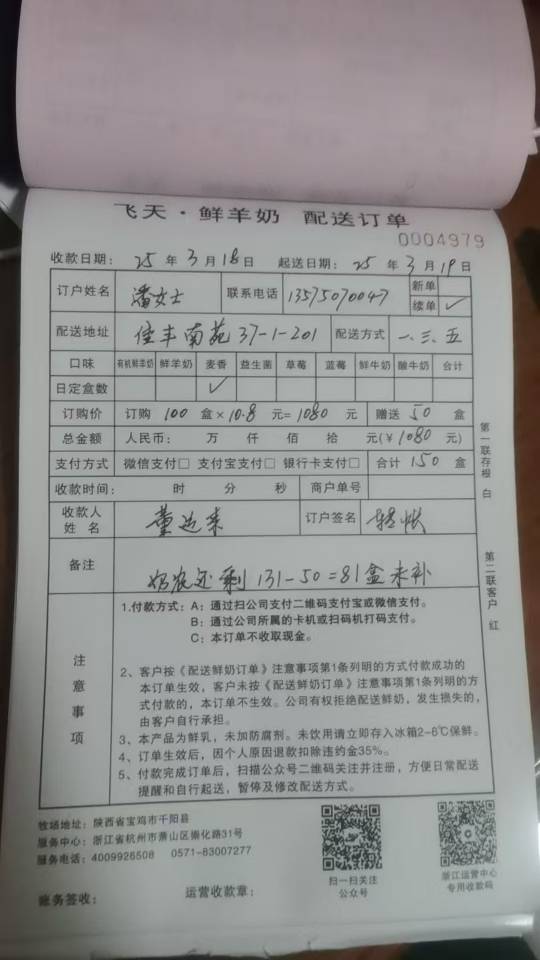 飞天·鲜羊奶 配送订单
0004979
收款日期: 25 年 3 月 18 日 起送日期: 25 年 3 月 19 日
订户姓名 潘女士 联系电话 13575070047 新单
续单 ✓
配送地址 佳丰南苑 37-1-201 配送方式 一、三、五
口味 有机鲜羊奶 鲜羊奶 麦香 益生菌 草莓 蓝莓 鲜牛奶 酸牛奶 合计
日定盒数 ✓
订购价 订购 100 盒×10.8 元=1080 元 赠送 50 盒
总金额 人民币: 万 仟 佰 拾 元(¥1080 元)
支付方式 微信支付□ 支付宝支付□ 银行卡支付□ 合计 150 盒
收款时间: 时 分 秒 商户单号
收款人
姓 名 董 订户签名 转帐
备注 奶农还剩 131-50=81盒未补
第一联存根 白
第二联客户 红
注意事项
1.付款方式: A: 通过扫公司支付二维码支付宝或微信支付。
B: 通过公司所属的卡机或扫码机打码支付。
C: 本订单不收取现金。
2、客户按《配送鲜奶订单》注意事项第1条列明的方式付款成功的
本订单生效，客户未按《配送鲜奶订单》注意事项第1条列明的方
式付款的，本订单不生效。公司有权拒绝配送鲜奶，发生损失的，
由客户自行承担。
3、本产品为鲜乳，未加防腐剂。未饮用请立即存入冰箱2-6℃保鲜。
4、订单生效后，因个人原因退款扣除违约金35%。
5、付款完成订单后，扫描公众号二维码关注并注册，方便日常配送
提醒和自行起送，暂停及修改配送方式。
牧场地址: 陕西省宝鸡市千阳县
服务中心: 浙江省杭州市萧山区崇化路31号
服务电话: 4009926508 0571-83007277
扫一扫关注
公众号
浙江运营中心
专用收款码
账务签收: 运营收款章: